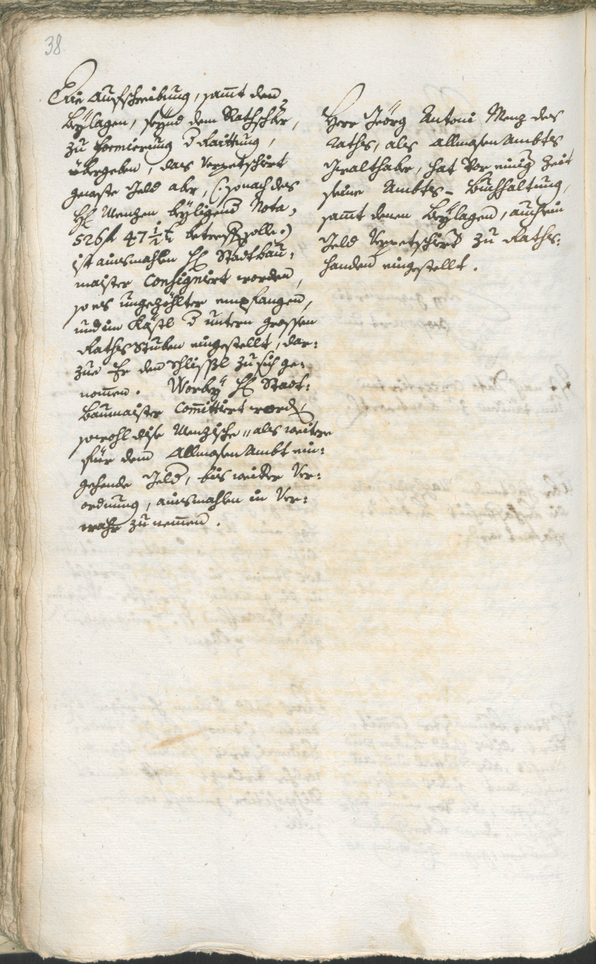 38
Die Aufschreibung, sammt den
Beylagen, seynd dem Rathschbr,
zu Formierung d Raittung,
übergeben, das verpetschirt
gemelte Geld aber, (: so nach des
H: Menzen beyligend Nota,
526 f 47 1/2 x betreffen solle :)
ist ainsmahlen H: Stattbau-
maister Consigniert worden,
so es ungezöhlter empfangen,
und in Kästl d untern grossen
Raths Stuben eingestellt, dar-
zue Er den Schlissl zu sich ge-
nommen. Worbey H: Statt-
Baumaister Comittiert worden
sowohl dise Menzische, als weiter
für dem Allmosen Ambt ein-
gehende Geld, bis weider Ver-
ordnung, ainsmahlen in Ver-
wahr zu nemmen.
Herr Georg Antoni Menz des
Raths, als Allmosen Ambts
Gwalthaber, hat vor einig Zeit
seine Ambts-Buchhaltung,
sammt denen Beylagen, auch ein
Geld verpetschirt zu Raths-
handen eingestellt.